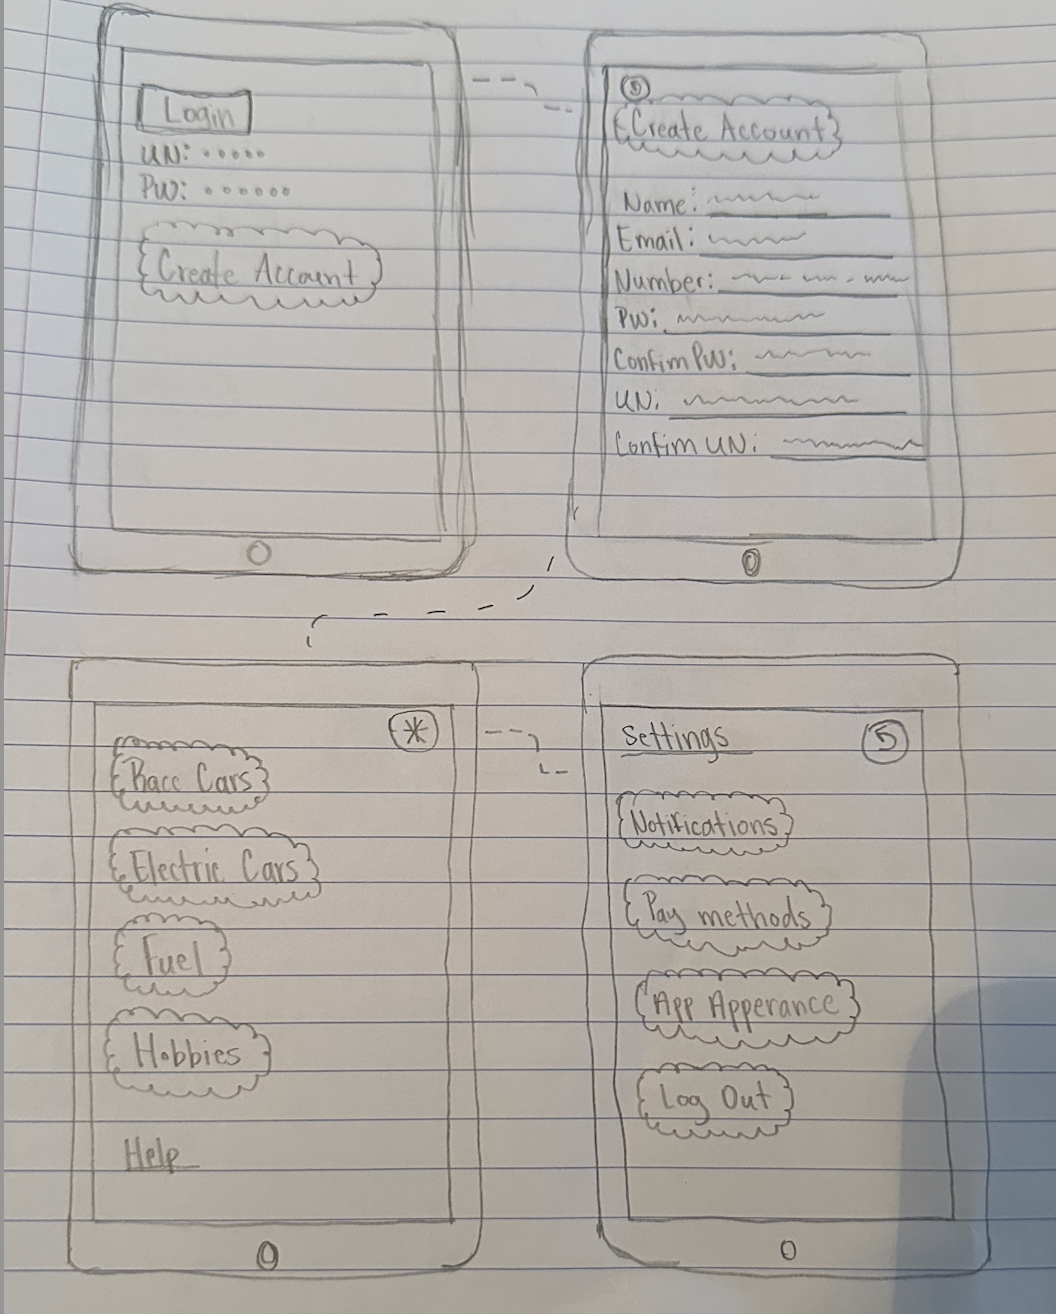 Login
UN:
PW:
Create Account
Create Account
Name:
Email:
Number:
PW:
Confirm PW:
UN:
Confirm UN:
Race Cars
Electric Cars
Fuel
Hobbies
Help
Settings
Notifications
Pay methods
App Apperance
Log Out